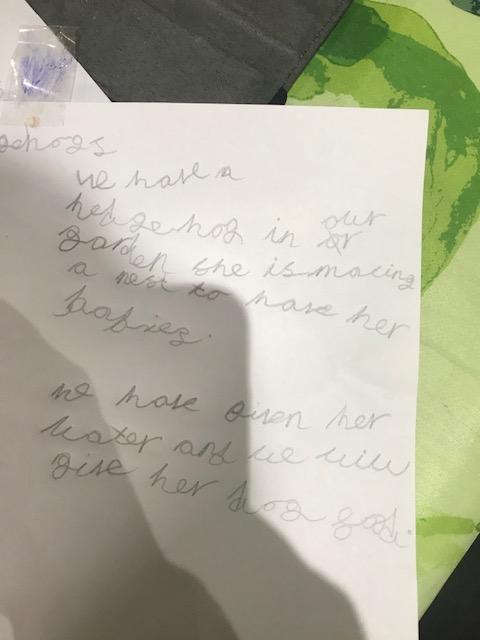 gehogs
we have a
hedgehog in our
garden she is macing
a nest to have her
babies.
we have given her
water and we will
give her dog food.